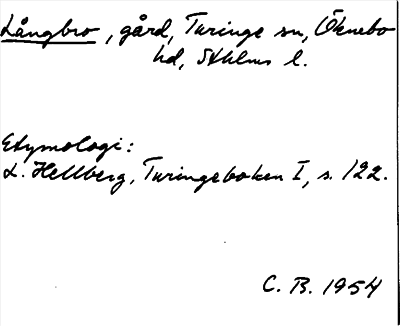 Långbro, gård, Turinge sn, Öknebo
hd, Sthlms l.
Etymologi:
L. Hellberg, Turingeboken I, s. 122.
C. B. 1954